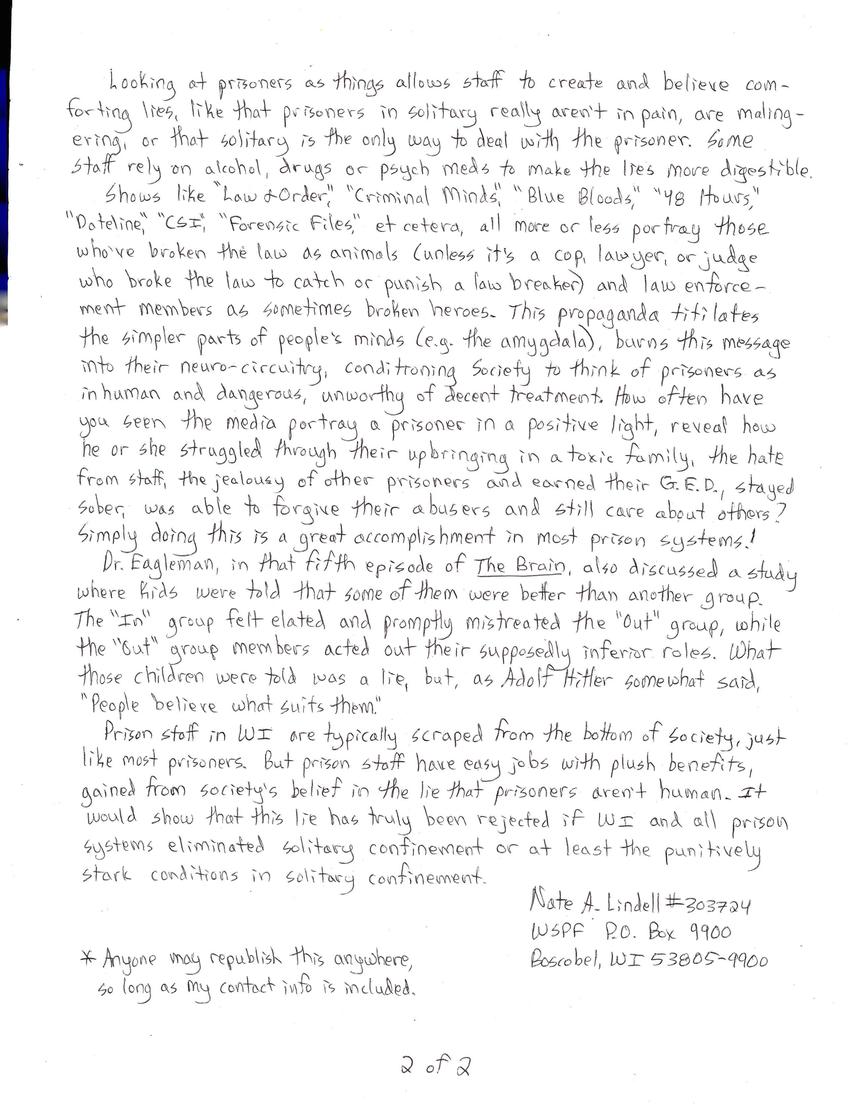 Looking at prisoners as things allows staff to create and believe com-
forting lies, like that prisoners in solitary really aren't in pain, are maling-
ering, or that solitary is the only way to deal with the prisoner. Some
staff rely on alcohol, drugs or psych meds to make the lies more digestible.
Shows like "Law & Order," "Criminal Minds," "Blue Bloods," "48 Hours,"
"Dateline," "CSI," "Forensic Files," et cetera, all more or less portray those
who've broken the law as animals (unless it's a cop, lawyer, or judge
who broke the law to catch or punish a law breaker) and law enforce-
ment members as sometimes broken heroes. This propaganda titilates
the simpler parts of people's minds (e.g. the amygdala), burns this message
into their neuro-circuitry, conditioning Society to think of prisoners as
inhuman and dangerous, unworthy of decent treatment. How often have
you seen the media portray a prisoner in a positive light, reveal how
he or she struggled through their upbringing in a toxic family, the hate
from staff, the jealousy of other prisoners and earned their G.E.D., stayed
sober, was able to forgive their abusers and still care about others?
Simply doing this is a great accomplishment in most prison systems!
Dr. Eagleman, in that fifth episode of The Brain, also discussed a study
where kids were told that some of them were better than another group.
The "In" group felt elated and promptly mistreated the "Out" group, while
the "Out" group members acted out their supposedly inferior roles. What
those children were told was a lie, but, as Adolf Hitler somewhat said,
"People believe what suits them."
Prison staff in WI are typically scraped from the bottom of society, just
like most prisoners. But prison staff have easy jobs with plush benefits,
gained from society's belief in the lie that prisoners aren't human. It
would show that this lie has truly been rejected if WI and all prison
systems eliminated solitary confinement or at least the punitively
stark conditions in solitary confinement.
Nate A. Lindell #303724
WSPF P.O. Box 9900
Boscobel, WI 53805-9900
* Anyone may republish this anywhere,
so long as my contact info is included.
2 of 2